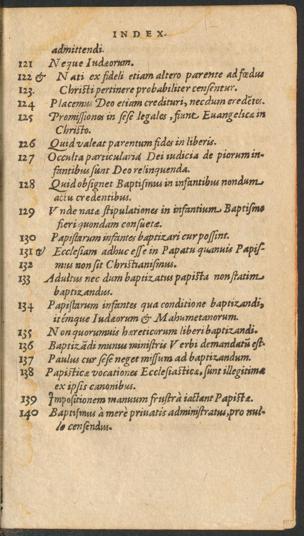 INDEX.
admittendi.
121 Neque Iudæorum.
122 & Nati ex fideli etiam altero parente ad fœdus
123. Christi pertinere probabiliter censentur.
124 Placemus Deo etiam crediturı, necdum credētes.
125 Promissiones in sese legales, fiunt Euangelicæ in
Christo.
126 Quid valeat parentum fides in liberis.
127 Occulta particularia Dei iudicia de piorum in-
fantibus sunt Deo relinquenda.
128 Quid obsignet Baptismus in infantibus nondum
actu credentibus.
129 Vnde natæ stipulationes in infantium Baptismo
fieri quondam consuetæ.
130 Papistarum infantes baptizari cur possint.
131 & Ecclesiam adhuc esse in Papatu quamuis Papis-
132 mus non sit Christianismus.
133 Adultus nec dum baptizatus papista non statim
baptizandus.
134 Papistarum infantes qua conditione baptizandi,
itémque Iudæorum & Mahumetanorum.
135 Non quorumuis hæreticorum liberi baptizandi.
136 Baptizādi munus ministris Verbi demandatū est.
137 Paulus cur sese neget missum ad baptizandum.
138 Papisticæ vocationes Ecclesiasticæ, sunt illegitimæ
ex ipsis canonibus.
139 Impositionem manuum frustrà iactant Papistæ.
140 Baptismus à merè priuatis administratus, pro nul-
lo censendus.